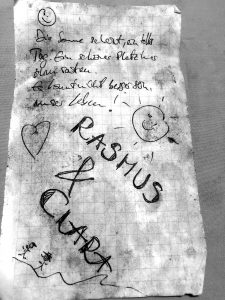 Die Sonne scheint, ein toller
Tag. Ein schöner Platz hier
zum rasten.
Es könnte nicht besser sein,
unser Leben!
RASMUS
&
CLARA